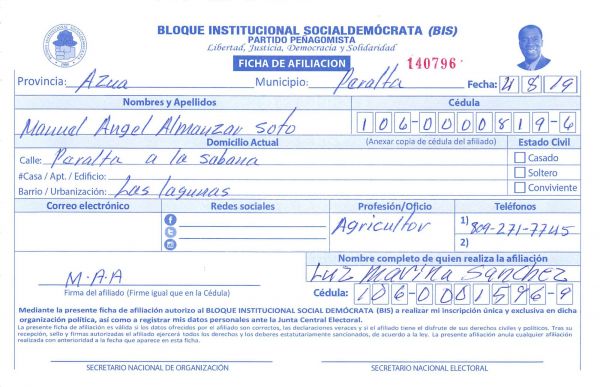 BLOQUE INSTITUCIONAL SOCIALDEMÓCRATA (BIS)
PARTIDO PEÑAGOMISTA
Libertad, Justicia, Democracia y Solidaridad
FICHA DE AFILIACION 140796
Provincia: Azua Municipio: Peralta Fecha: 4 8 19
Nombres y Apellidos Cédula
Manuel Angel Almanzar Soto 106-0000819-6
Domicilio Actual (Anexar copia de cédula del afiliado) Estado Civil
Calle: Peralta a la Sabana Casado
#Casa / Apt. / Edificio: Soltero
Barrio / Urbanización: Las lagunas Conviviente
Correo electrónico Redes sociales Profesión/Oficio Teléfonos
Agricultor 1) 809-271-7745
2)
Nombre completo de quien realiza la afiliación
M-A.A Luz Marina Sanchez
Firma del afiliado (Firme igual que en la Cédula) Cédula: 106-0001596-9
Mediante la presente ficha de afiliación autorizo al BLOQUE INSTITUCIONAL SOCIAL DEMÓCRATA (BIS) a realizar mi inscripción única y exclusiva en dicha
organización política, así como a registrar mis datos personales ante la Junta Central Electoral.
La presente ficha de afiliación es válida si los datos ofrecidos por el afiliado son correctos, las declaraciones veraces y si el afiliado tiene el disfrute de sus derechos civiles y políticos. Tras su
recepción, sello y firmas autorizadas el afiliado ejercerá todos los derechos y los deberes estatutariamente sancionados, de acuerdo a la ley. La presente afiliación anula cualquier afiliación
realizada con anterioridad a la fecha que aparece en esta ficha.
SECRETARIO NACIONAL DE ORGANIZACIÓN SECRETARIO NACIONAL ELECTORAL